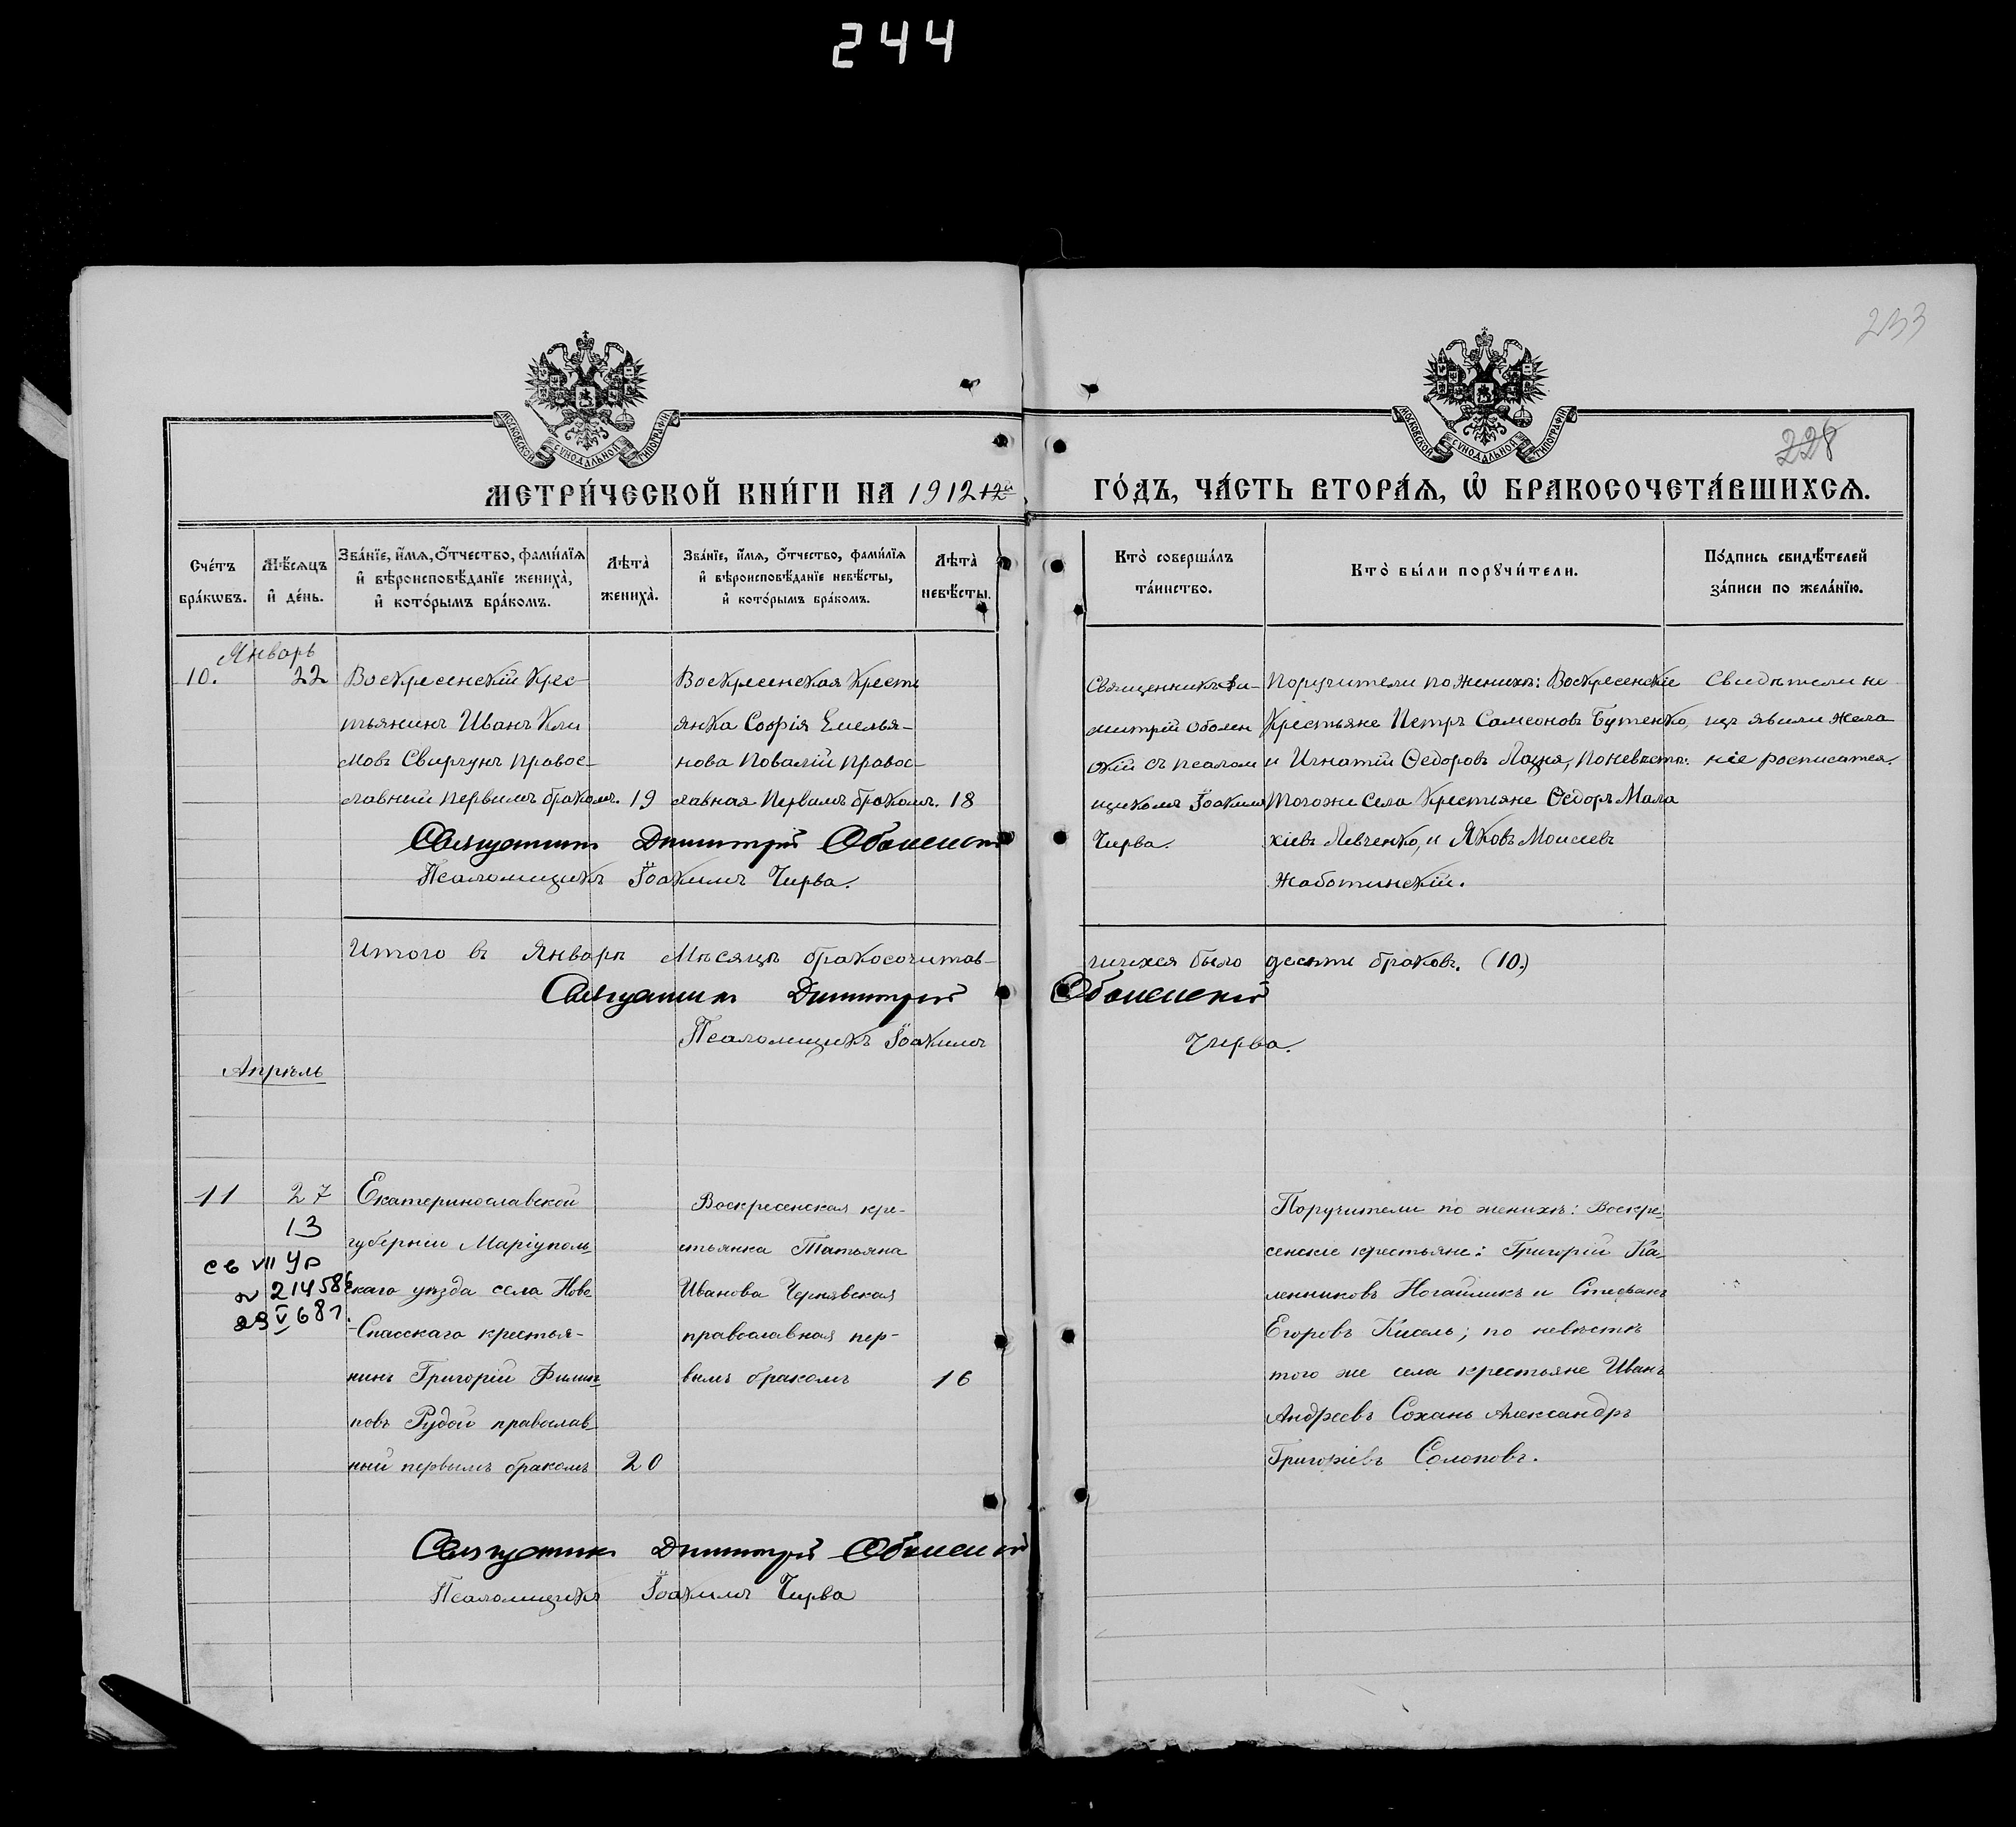 244
233
228
МОСКОВСКОЙ СУНОДАЛЬНОЙ ТИПОГРАФІИ
МОСКОВСКОЙ СУНОДАЛЬНОЙ ТИПОГРАФІИ
МЕТРИ́ЧЕСКОЙ КНИ́ГИ НА 1912
ГО́ДЪ, ЧА́СТЬ ВТОРА́Ѧ, Ѡ БРАКОСОЧЕТА́ВШИХСѦ.
Сче́тъ бра́кѡвъ.
Мѣ́сѧцъ и҆ де́нь.
Зва́нїе, и҆́мѧ, ѻ҆́тчество, фами́лїѧ и҆ вѣроисповѣ́данїе жениха̀, и҆ кото́рымъ бра́комъ.
Лѣта̀ жениха̀.
Зва́нїе, и҆́мѧ, ѻ҆́тчество, фами́лїѧ и҆ вѣроисповѣ́данїе невѣ́сты, и҆ кото́рымъ бра́комъ.
Лѣта̀ невѣ́сты.
Кто̀ соверша́лъ та́инство.
Кто̀ бы́ли порꙋчи́тели.
По́дпись свидѣ́телей за́писи по жела́нїю.
Январь
10.
22
Воскресенскій Крес-
тьянинъ Иванъ Кли
мовъ Свиргунъ правос-
лавний первимъ бракомъ. 19
Воскресенская Крестя
янка Софія Емелья-
нова Повалій правос-
лавная Первимъ бракомъ. 18
Священникъ Ди-
митрій Оболен
скій съ псалом
щикомъ Іоакимъ
Чирва.
Поручители по женихѣ: Воскресенскіе
Крестьяне Петръ Самсоновъ Бутенко,
и Игнатій Ѳедоровъ Лацня, По невѣстѣ:
тогоже села Крестьяне Ѳедоръ Мала
хіевъ Левченко, и Яковъ Моисеевъ
Жаботинскій.
Свидѣтели не
изъявили жела
ніе росписатся.
Священникъ Димитрій Оболенскій
Псаломщикъ Іоакимъ Чирва.
Итого въ Январѣ Мѣсяцѣ бракосочитав-
шихся было десять браковъ. (10.)
Священникъ Димитрій Оболенскій
Псаломщикъ Іоакимъ Чирва.
Апрѣль
11
27
13
св VII УР
№ 214586
29 V 681.
Екатеринославской
губерніи Маріуполь-
скаго уѣзда села Ново
-Спасскаго крестья-
нинъ Григорій Филип-
повъ Рудой православ-
ный первымъ бракомъ 20
Воскресенская кре-
стьянка Татьяна
Иванова Чернявская
православная пер-
вымъ бракомъ 16
Поручители по женихѣ: Воскре-
сенскіе крестьяне: Григорій Ка-
ленниковъ Ногайликъ и Стефанъ
Егоровъ Кисель; по невѣстѣ
того же села крестьяне Иванъ
Андреевъ Сохань Александръ
Григоріевъ Солоповъ.
Священникъ Димитрій Оболенскій
Псаломщикъ Іоакимъ Чирва